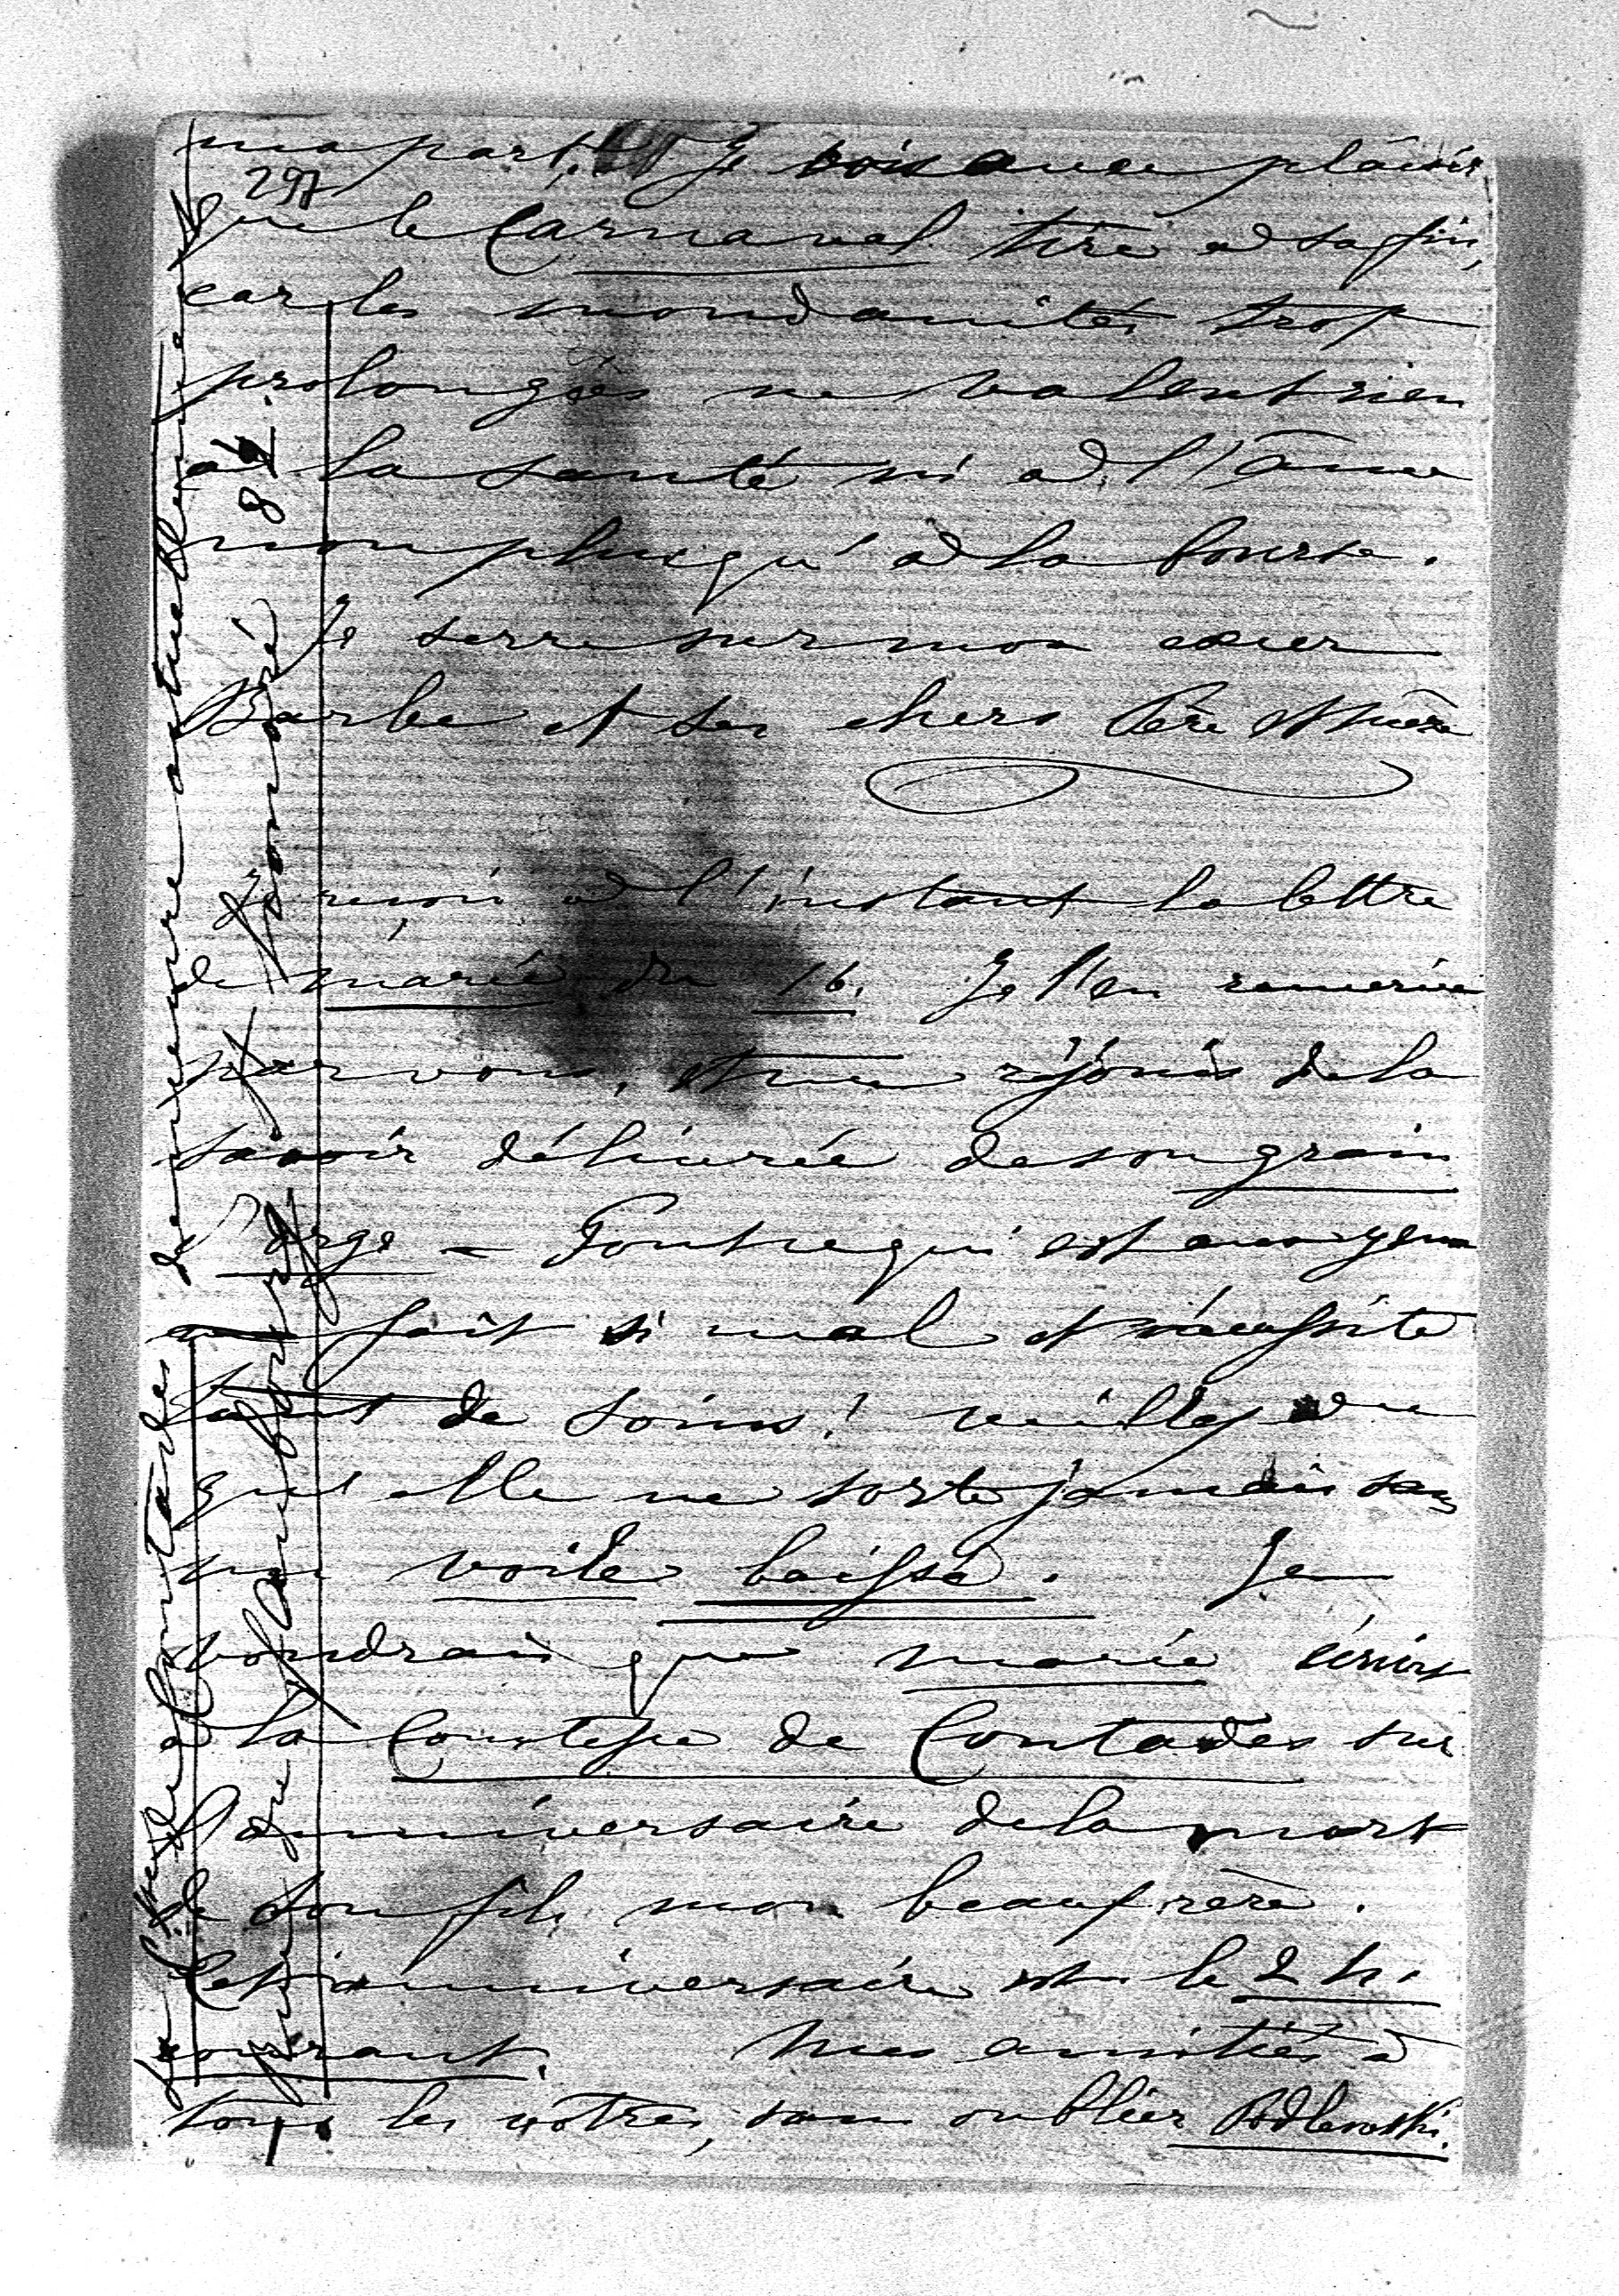 ma part. Je vois avec plaisir
297
que le Carnaval tire à sa fin,
car les mondanités trop
prolongées ne valent rien
à la santé ni à l'âme
non plus qu'à la bourse.
Je serre sur mon cœur
Barbe et ses chers Père et mère
Je reçois à l'instant la lettre
de marie du 16. Je l'en remercie
par vous, et me réjouis de la
savoir délivrée de son grain
d'orge - Tout ce qui est aux yeux
fait si mal et nécessite
tant de soins! veillez à ce
qu'elle ne sorte jamais sans
un voile baissé. Je
voudrais que marie écrivit
à la Comtesse de Contades sur
l'anniversaire de la mort
de son fils mon beaufrère.
Cet anniversaire est le 24.
courant. Mes amitiés à
tous les vôtres, sans oublier Podlewski.
La Ctesse de Contades
demeure actuellement
rue du
82.